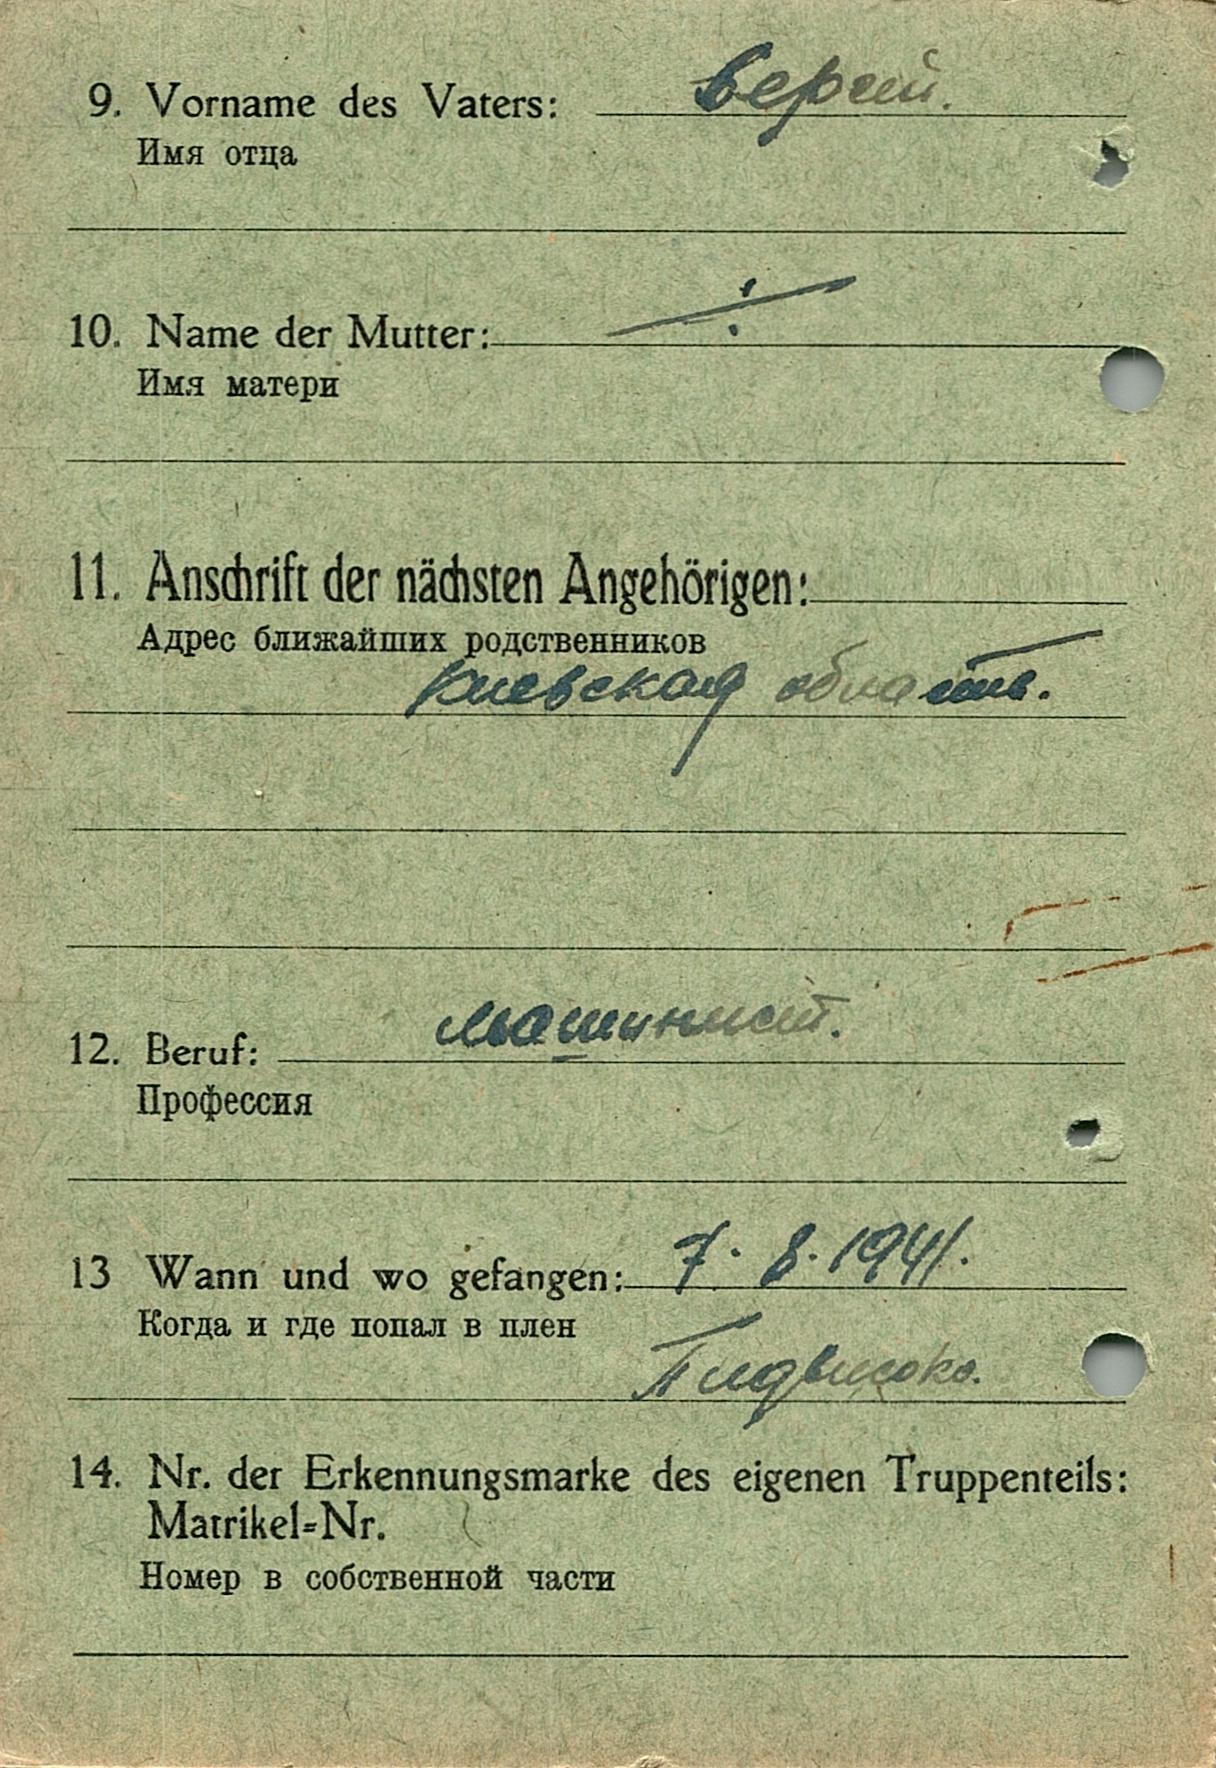 9. Vorname des Vaters:
Имя отца
10. Name der Mutter:
Имя матери
11. Anschrift der nächsten Angehörigen:
Адрес ближайших родственников
Киевская область.
машинист.
12. Beruf:
Профессия
13 Wann und wo gefangen: 7. 8. 1941.
Когда и где попал в плен
Пидвисоко.
14. Nr. der Erkennungsmarke des eigenen Truppenteils:
Matrikel=Nr.
Номер в собственной части